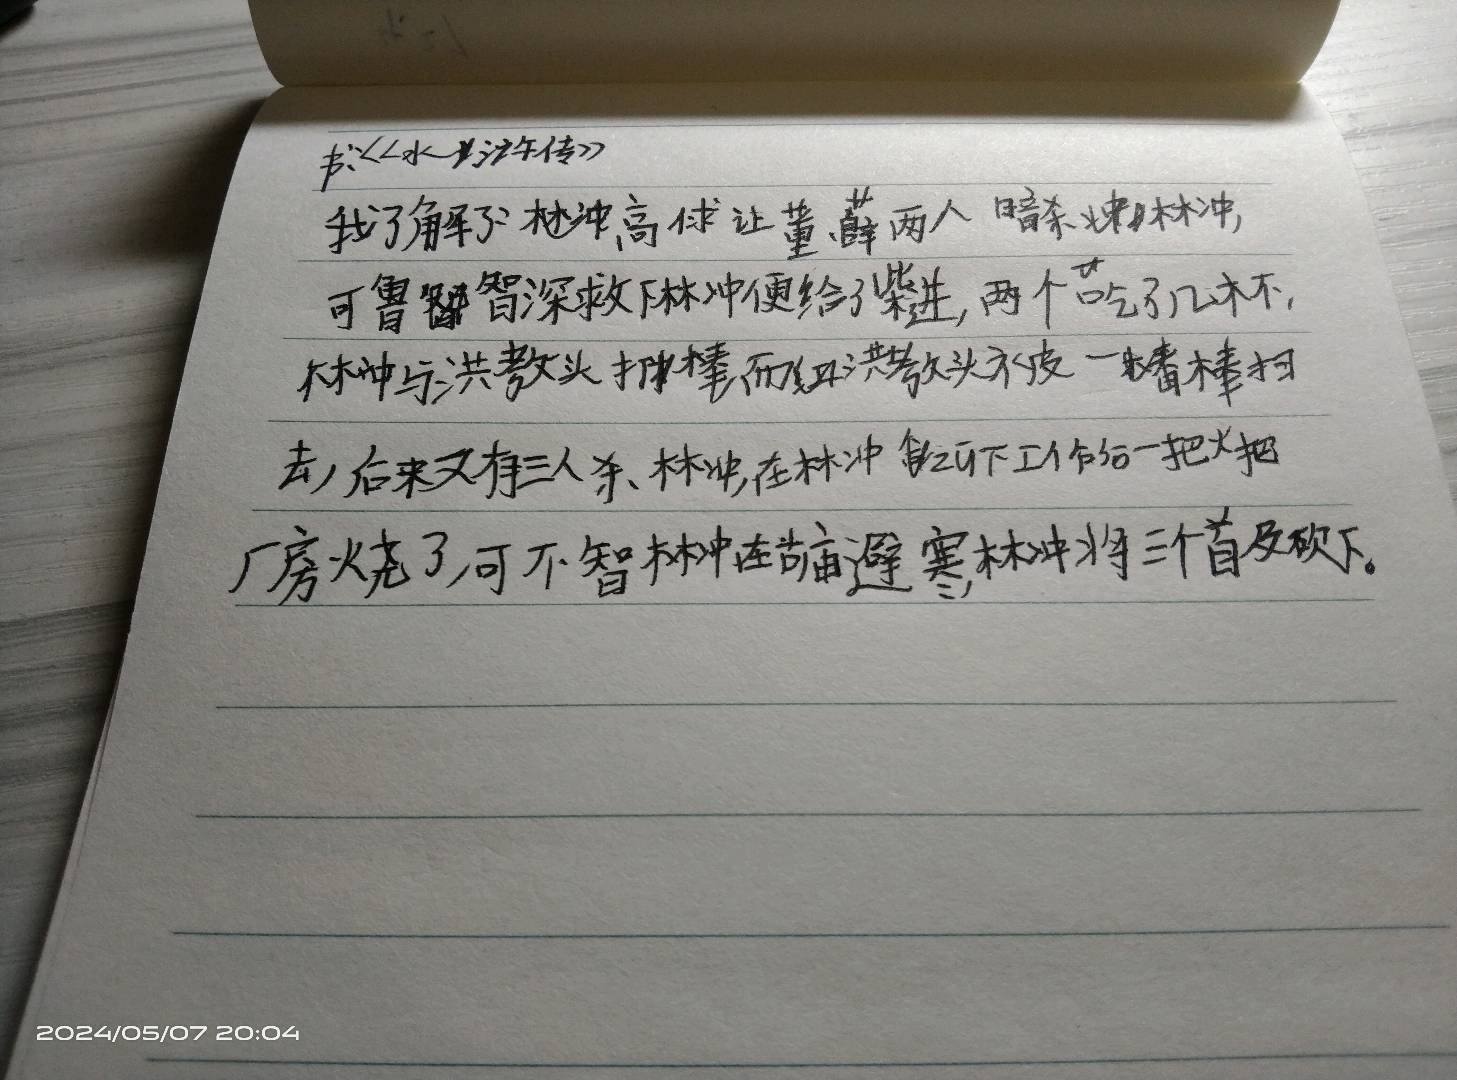 书:《水浒传》
我了解了林冲,高俅让董、薛两人暗杀林冲,
可鲁智深救下林冲便给了柴进,两个吃了几杯,
林冲与洪教头打棒,而洪教头不皮一棒扫
去,后来又有三人杀、林冲,在林冲下工作给一把火把
厂房火烧了,可不智林冲在古庙避寒,林冲将三个首及砍下。
2024/05/07 20:04